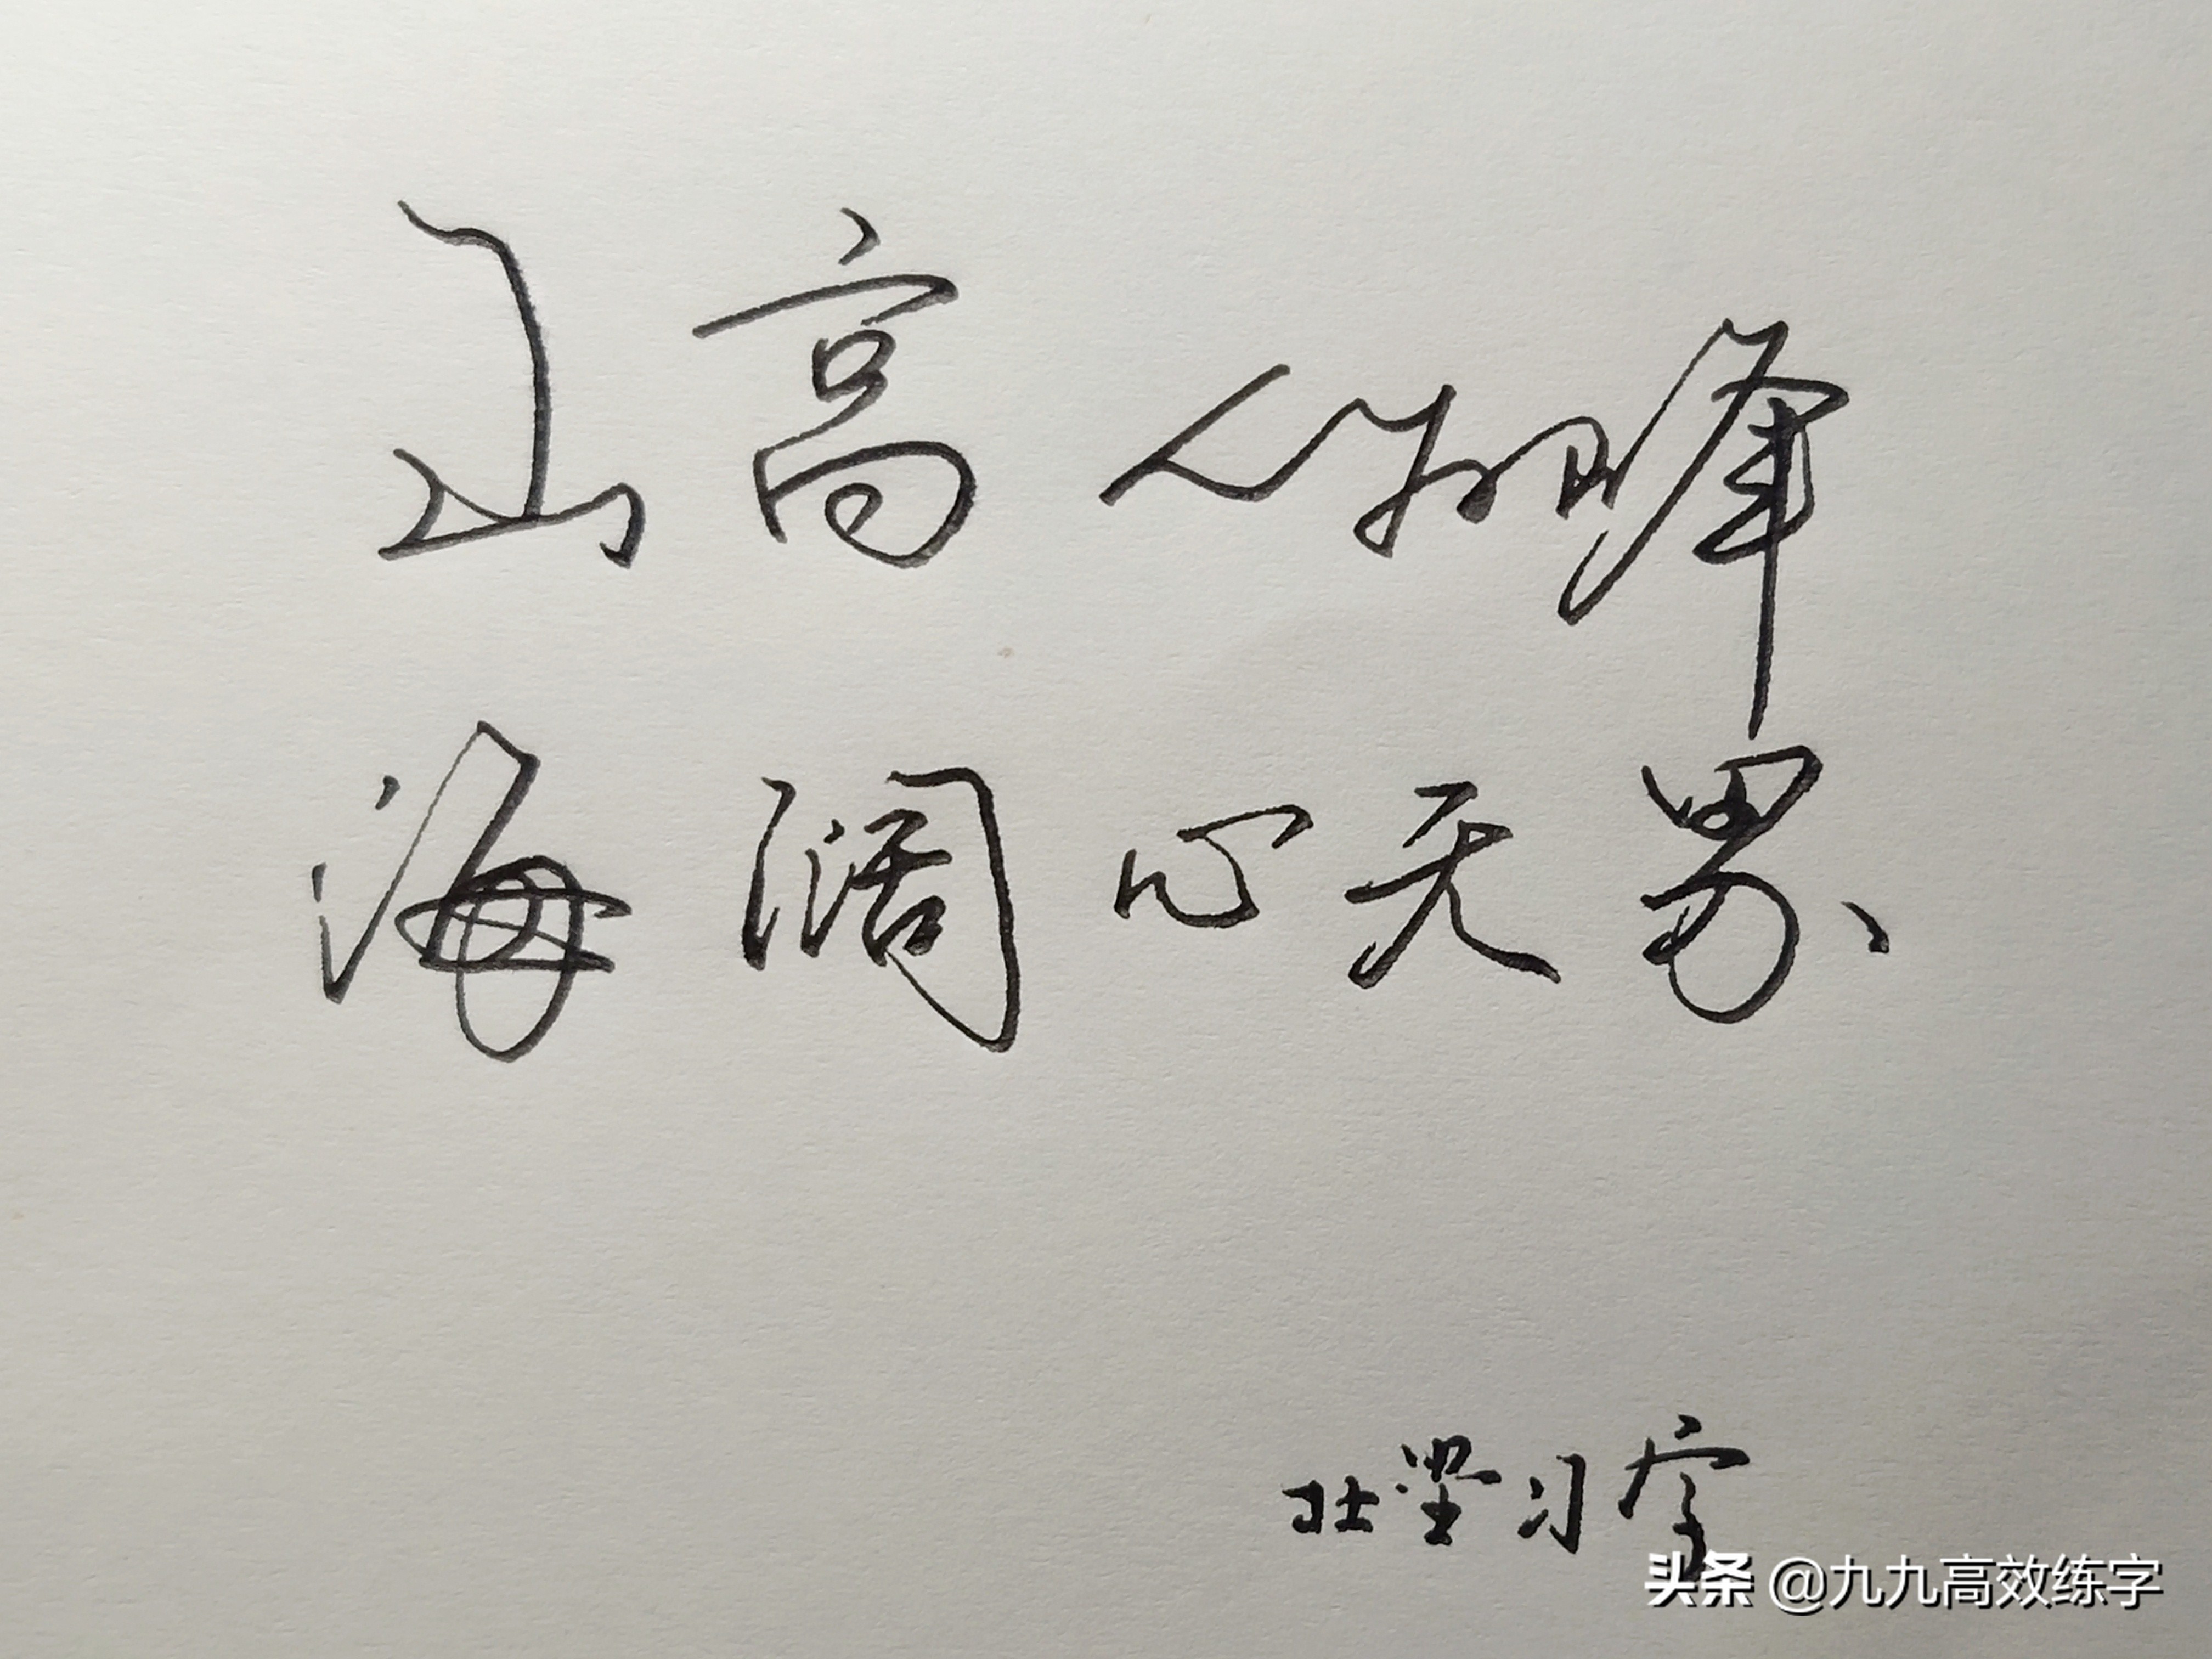 山高人如峰
海阔心无界、
北墨习字
头条 @九九高效练字